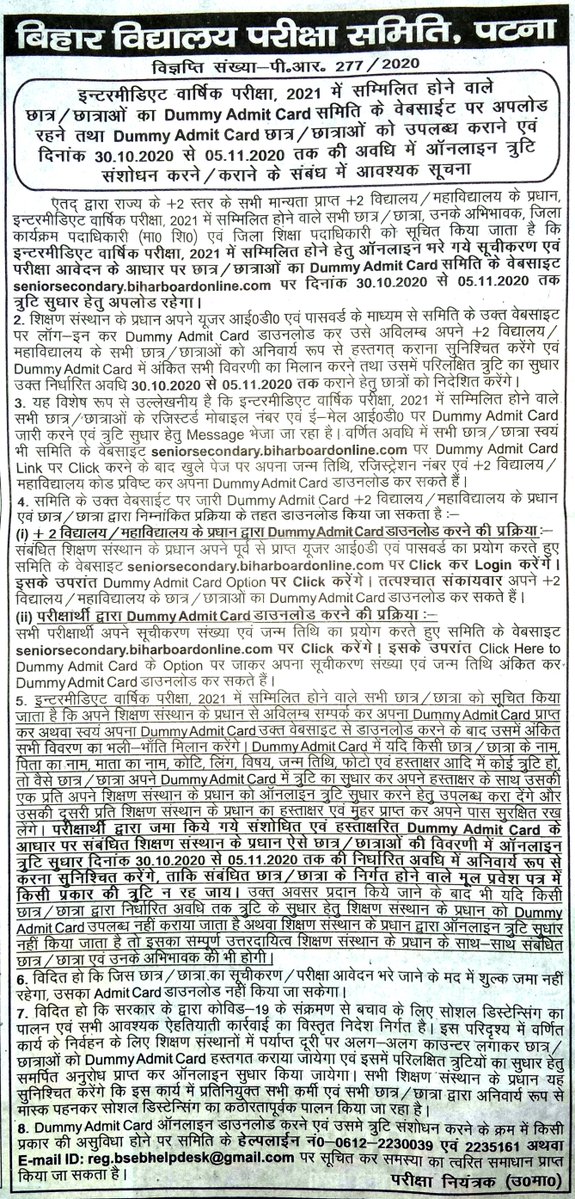 बिहार विद्यालय परीक्षा समिति, पटना
विज्ञप्ति संख्या-पी.आर. 277/2020
इन्टरमीडिएट वार्षिक परीक्षा, 2021 में सम्मिलित होने वाले
छात्र/छात्राओं का Dummy Admit Card समिति के वेबसाईट पर अपलोड
रहने तथा Dummy Admit Card छात्र/छात्राओं को उपलब्ध कराने एवं
दिनांक 30.10.2020 से 05.11.2020 तक की अवधि में ऑनलाइन त्रुटि
संशोधन करने/कराने के संबंध में आवश्यक सूचना
एतद् द्वारा राज्य के +2 स्तर के सभी मान्यता प्राप्त +2 विद्यालय/महाविद्यालय के प्रधान,
इन्टरमीडिएट वार्षिक परीक्षा, 2021 में सम्मिलित होने वाले सभी छात्र/छात्रा, उनके अभिभावक, जिला
कार्यक्रम पदाधिकारी (मा० शि०) एवं जिला शिक्षा पदाधिकारी को सूचित किया जाता है कि
इन्टरमीडिएट वार्षिक परीक्षा, 2021 में सम्मिलित होने हेतु ऑनलाइन भरे गये सूचीकरण एवं
परीक्षा आवेदन के आधार पर छात्र/छात्राओं का Dummy Admit Card समिति के वेबसाइट
seniorsecondary.biharboardonline.com पर दिनांक 30.10.2020 से 05.11.2020 तक
त्रुटि सुधार हेतु अपलोड रहेगा।
2. शिक्षण संस्थान के प्रधान अपने यूजर आई०डी० एवं पासवर्ड के माध्यम से समिति के उक्त वेबसाइट
पर लॉग-इन कर Dummy Admit Card डाउनलोड कर उसे अविलम्ब अपने +2 विद्यालय/
महाविद्यालय के सभी छात्र/छात्राओं को अनिवार्य रूप से हस्तगत् कराना सुनिश्चित करेंगे एवं
Dummy Admit Card में अंकित सभी विवरणी का मिलान करने तथा उसमें परिलक्षित त्रुटि का सुधार
उक्त निर्धारित अवधि 30.10.2020 से 05.11.2020 तक कराने हेतु छात्रों को निदेशित करेंगे।
3. यह विशेष रूप से उल्लेखनीय है कि इन्टरमीडिएट वार्षिक परीक्षा, 2021 में सम्मिलित होने वाले
सभी छात्र/छात्राओं के रजिस्टर्ड मोबाइल नंबर एवं ई-मेल आई०डी० पर Dummy Admit Card
जारी करने एवं त्रुटि सुधार हेतु Message भेजा जा रहा है। वर्णित अवधि में सभी छात्र/छात्रा स्वयं
भी समिति के वेबसाइट seniorsecondary.biharboardonline.com पर Dummy Admit Card
Link पर Click करने के बाद खुले पेज पर अपना जन्म तिथि, रजिस्ट्रेशन नंबर एवं +2 विद्यालय/
महाविद्यालय कोड प्रविष्ट कर अपना Dummy Admit Card डाउनलोड कर सकते हैं।
4. समिति के उक्त वेबसाईट पर जारी Dummy Admit Card +2 विद्यालय/महाविद्यालय के प्रधान
एवं छात्र/छात्रा द्वारा निम्नांकित प्रक्रिया के तहत डाउनलोड किया जा सकता है :-
(i) +2 विद्यालय/महाविद्यालय के प्रधान द्वारा Dummy Admit Card डाउनलोड करने की प्रक्रिया:-
संबंधित शिक्षण संस्थान के प्रधान अपने पूर्व से प्राप्त यूजर आई०डी एवं पासवर्ड का प्रयोग करते हुए
समिति के वेबसाइट seniorsecondary.biharboardonline.com पर Click कर Login करेंगे।
इसके उपरांत Dummy Admit Card Option पर Click करेंगे। तत्पश्चात संकायवार अपने +2
विद्यालय/महाविद्यालय के छात्र/छात्राओं का Dummy Admit Card डाउनलोड कर सकते हैं।
(ii) परीक्षार्थी द्वारा Dummy Admit Card डाउनलोड करने की प्रक्रिया :-
सभी परीक्षार्थी अपने सूचीकरण संख्या एवं जन्म तिथि का प्रयोग करते हुए समिति के वेबसाइट
seniorsecondary.biharboardonline.com पर Click करेंगे। इसके उपरांत Click Here to
Dummy Admit Card के Option पर जाकर अपना सूचीकरण संख्या एवं जन्म तिथि अंकित कर
Dummy Admit Card डाउनलोड कर सकते हैं।
5. इन्टरमीडिएट वार्षिक परीक्षा, 2021 में सम्मिलित होने वाले सभी छात्र/छात्रा को सूचित किया
जाता है कि अपने शिक्षण संस्थान के प्रधान से अविलम्ब सम्पर्क कर अपना Dummy Admit Card प्राप्त
कर अथवा स्वयं अपना Dummy Admit Card उक्त वेबसाइट से डाउनलोड करने के बाद उसमें अंकित
सभी विवरण का भली-भाँति मिलान करेंगे। Dummy Admit Card में यदि किसी छात्र/छात्रा के नाम,
पिता का नाम, माता का नाम, कोटि, लिंग, विषय, जन्म तिथि, फोटो एवं हस्ताक्षर आदि में कोई त्रुटि हो,
तो वैसे छात्र/छात्रा अपने Dummy Admit Card में त्रुटि का सुधार कर अपने हस्ताक्षर के साथ उसकी
एक प्रति अपने शिक्षण संस्थान के प्रधान को ऑनलाईन त्रुटि सुधार करने हेतु उपलब्ध करा देंगे और
उसकी दूसरी प्रति शिक्षण संस्थान के प्रधान का हस्ताक्षर एवं मुहर प्राप्त कर अपने पास सुरक्षित रख
लेंगे। परीक्षार्थी द्वारा जमा किये गये संशोधित एवं हस्ताक्षरित Dummy Admit Card के
आधार पर संबंधित शिक्षण संस्थान के प्रधान ऐसे छात्र/छात्राओं की विवरणी में ऑनलाइन
त्रुटि सुधार दिनांक 30.10.2020 से 05.11.2020 तक की निर्धारित अवधि में अनिवार्य रूप से
करना सुनिश्चित करेंगे, ताकि संबंधित छात्र/छात्रा के निर्गत होने वाले मूल प्रवेश पत्र में
किसी प्रकार की त्रुटि न रह जाय। उक्त अवसर प्रदान किये जाने के बाद भी यदि किसी
छात्र/छात्रा द्वारा निर्धारित अवधि तक त्रुटि के सुधार हेतु शिक्षण संस्थान के प्रधान को Dummy
Admit Card उपलब्ध नहीं कराया जाता है अथवा शिक्षण संस्थान के प्रधान द्वारा ऑनलाइन त्रुटि सुधार
नहीं किया जाता है तो इसका सम्पूर्ण उत्तरदायित्व शिक्षण संस्थान के प्रधान के साथ-साथ संबंधित
छात्र/छात्रा एवं उनके अभिभावक की भी होगी।
6. विदित हो कि जिस छात्र/छात्रा का सूचीकरण/परीक्षा आवेदन भरे जाने के मद में शुल्क जमा नहीं
रहेगा, उसका Admit Card डाउनलोड नहीं किया जा सकेगा।
7. विदित हो कि सरकार के द्वारा कोविड-19 के संक्रमण से बचाव के लिए सोशल डिस्टेन्सिंग का
पालन एवं सभी आवश्यक ऐहतियाती कार्रवाई का विस्तृत निदेश निर्गत है। इस परिदृश्य में वर्णित
कार्य के निर्वहन के लिए शिक्षण संस्थानों में पर्याप्त दूरी पर अलग-अलग काउन्टर लगाकर छात्र/
छात्राओं को Dummy Admit Card हस्तगत कराया जायेगा एवं इसमें परिलक्षित त्रुटियों का सुधार हेतु
समर्पित अनुरोध प्राप्त कर ऑनलाइन सुधार किया जायेगा। सभी शिक्षण संस्थान के प्रधान यह
सुनिश्चित करेंगे कि इस कार्य में प्रतिनियुक्त सभी कर्मी एवं सभी छात्र/छात्रा द्वारा अनिवार्य रूप से
मास्क पहनकर सोशल डिस्टेन्सिंग का कठोरतापूर्वक पालन किया जा रहा है।
8. Dummy Admit Card ऑनलाइन डाउनलोड करने एवं उसमे त्रुटि संशोधन करने के क्रम में किसी
प्रकार की असुविधा होने पर समिति के हेल्पलाईन नं०-0612-2230039 एवं 2235161 अथवा
E-mail ID: reg.bsebhelpdesk@gmail.com पर सूचित कर समस्या का त्वरित समाधान प्राप्त
किया जा सकता है।
परीक्षा नियंत्रक (उ०मा०)